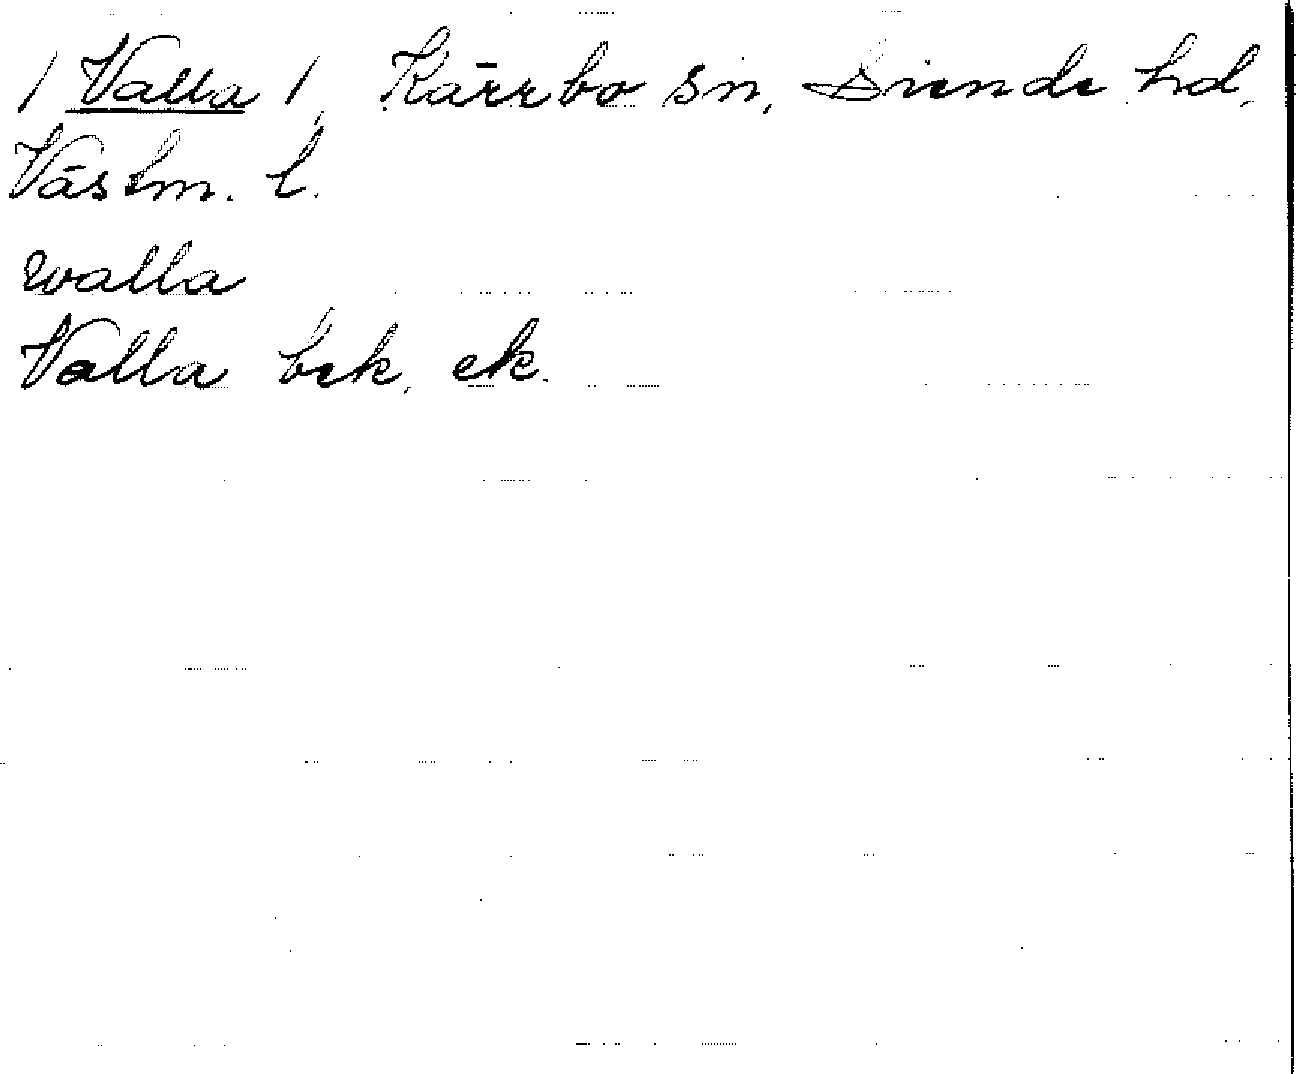 / Valla /, Kärrbo sn, Siende hd,
Västm. l.
walla
Valla bek. ek.